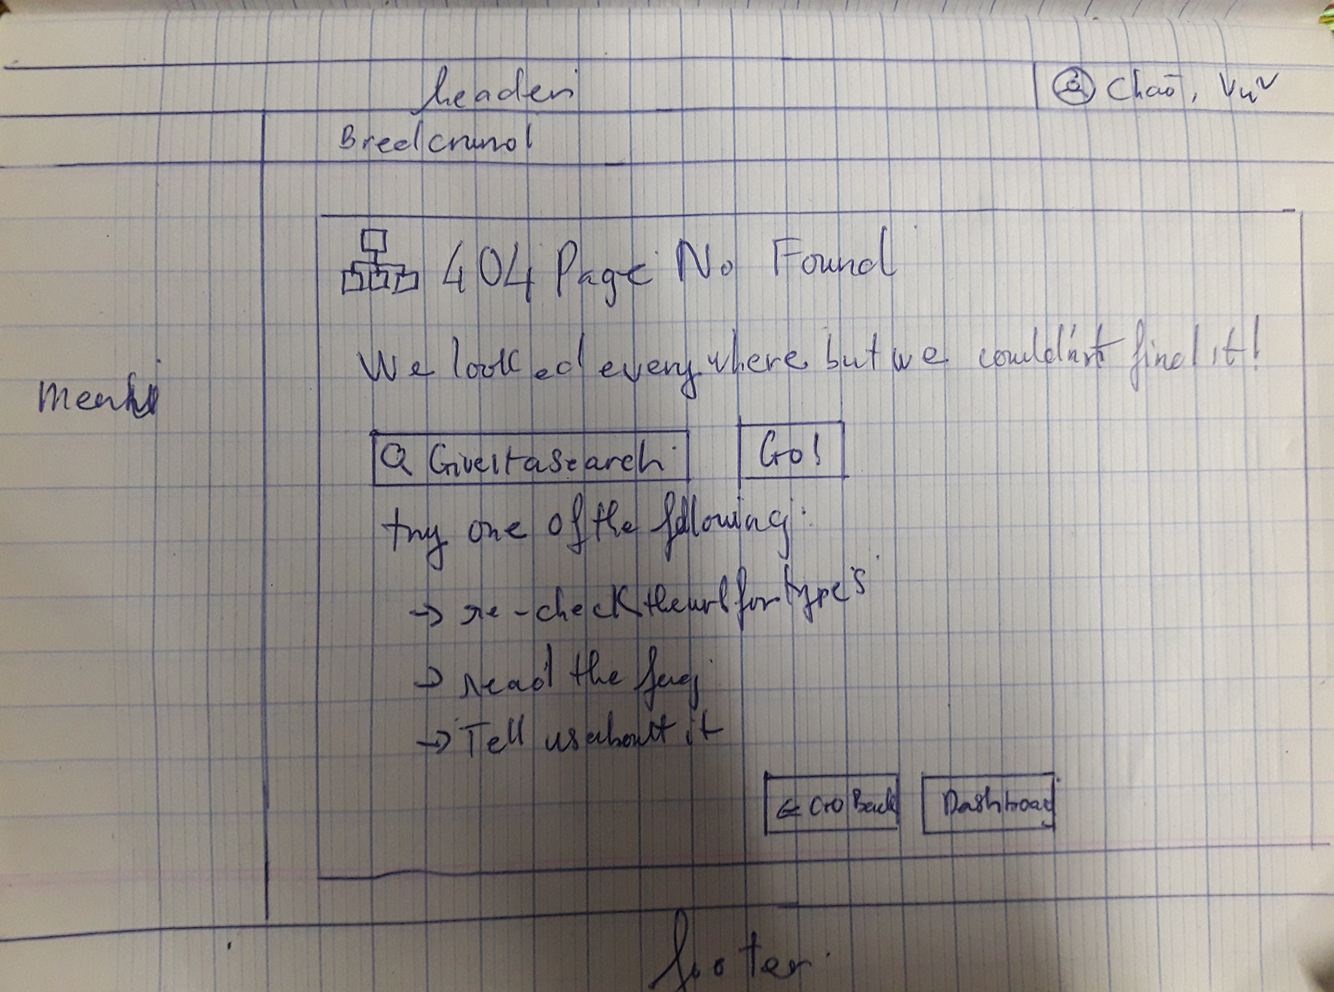 header
Chào, Vũ
Bredcrumd
404 Page No Found
We looked everywhere but we couldn't find it!
Menu
Give it a search
Go!
try one of the following:
→ re-check the url for type's
→ read the faq
→ Tell us about it
← Go Back
Dashboard
footer